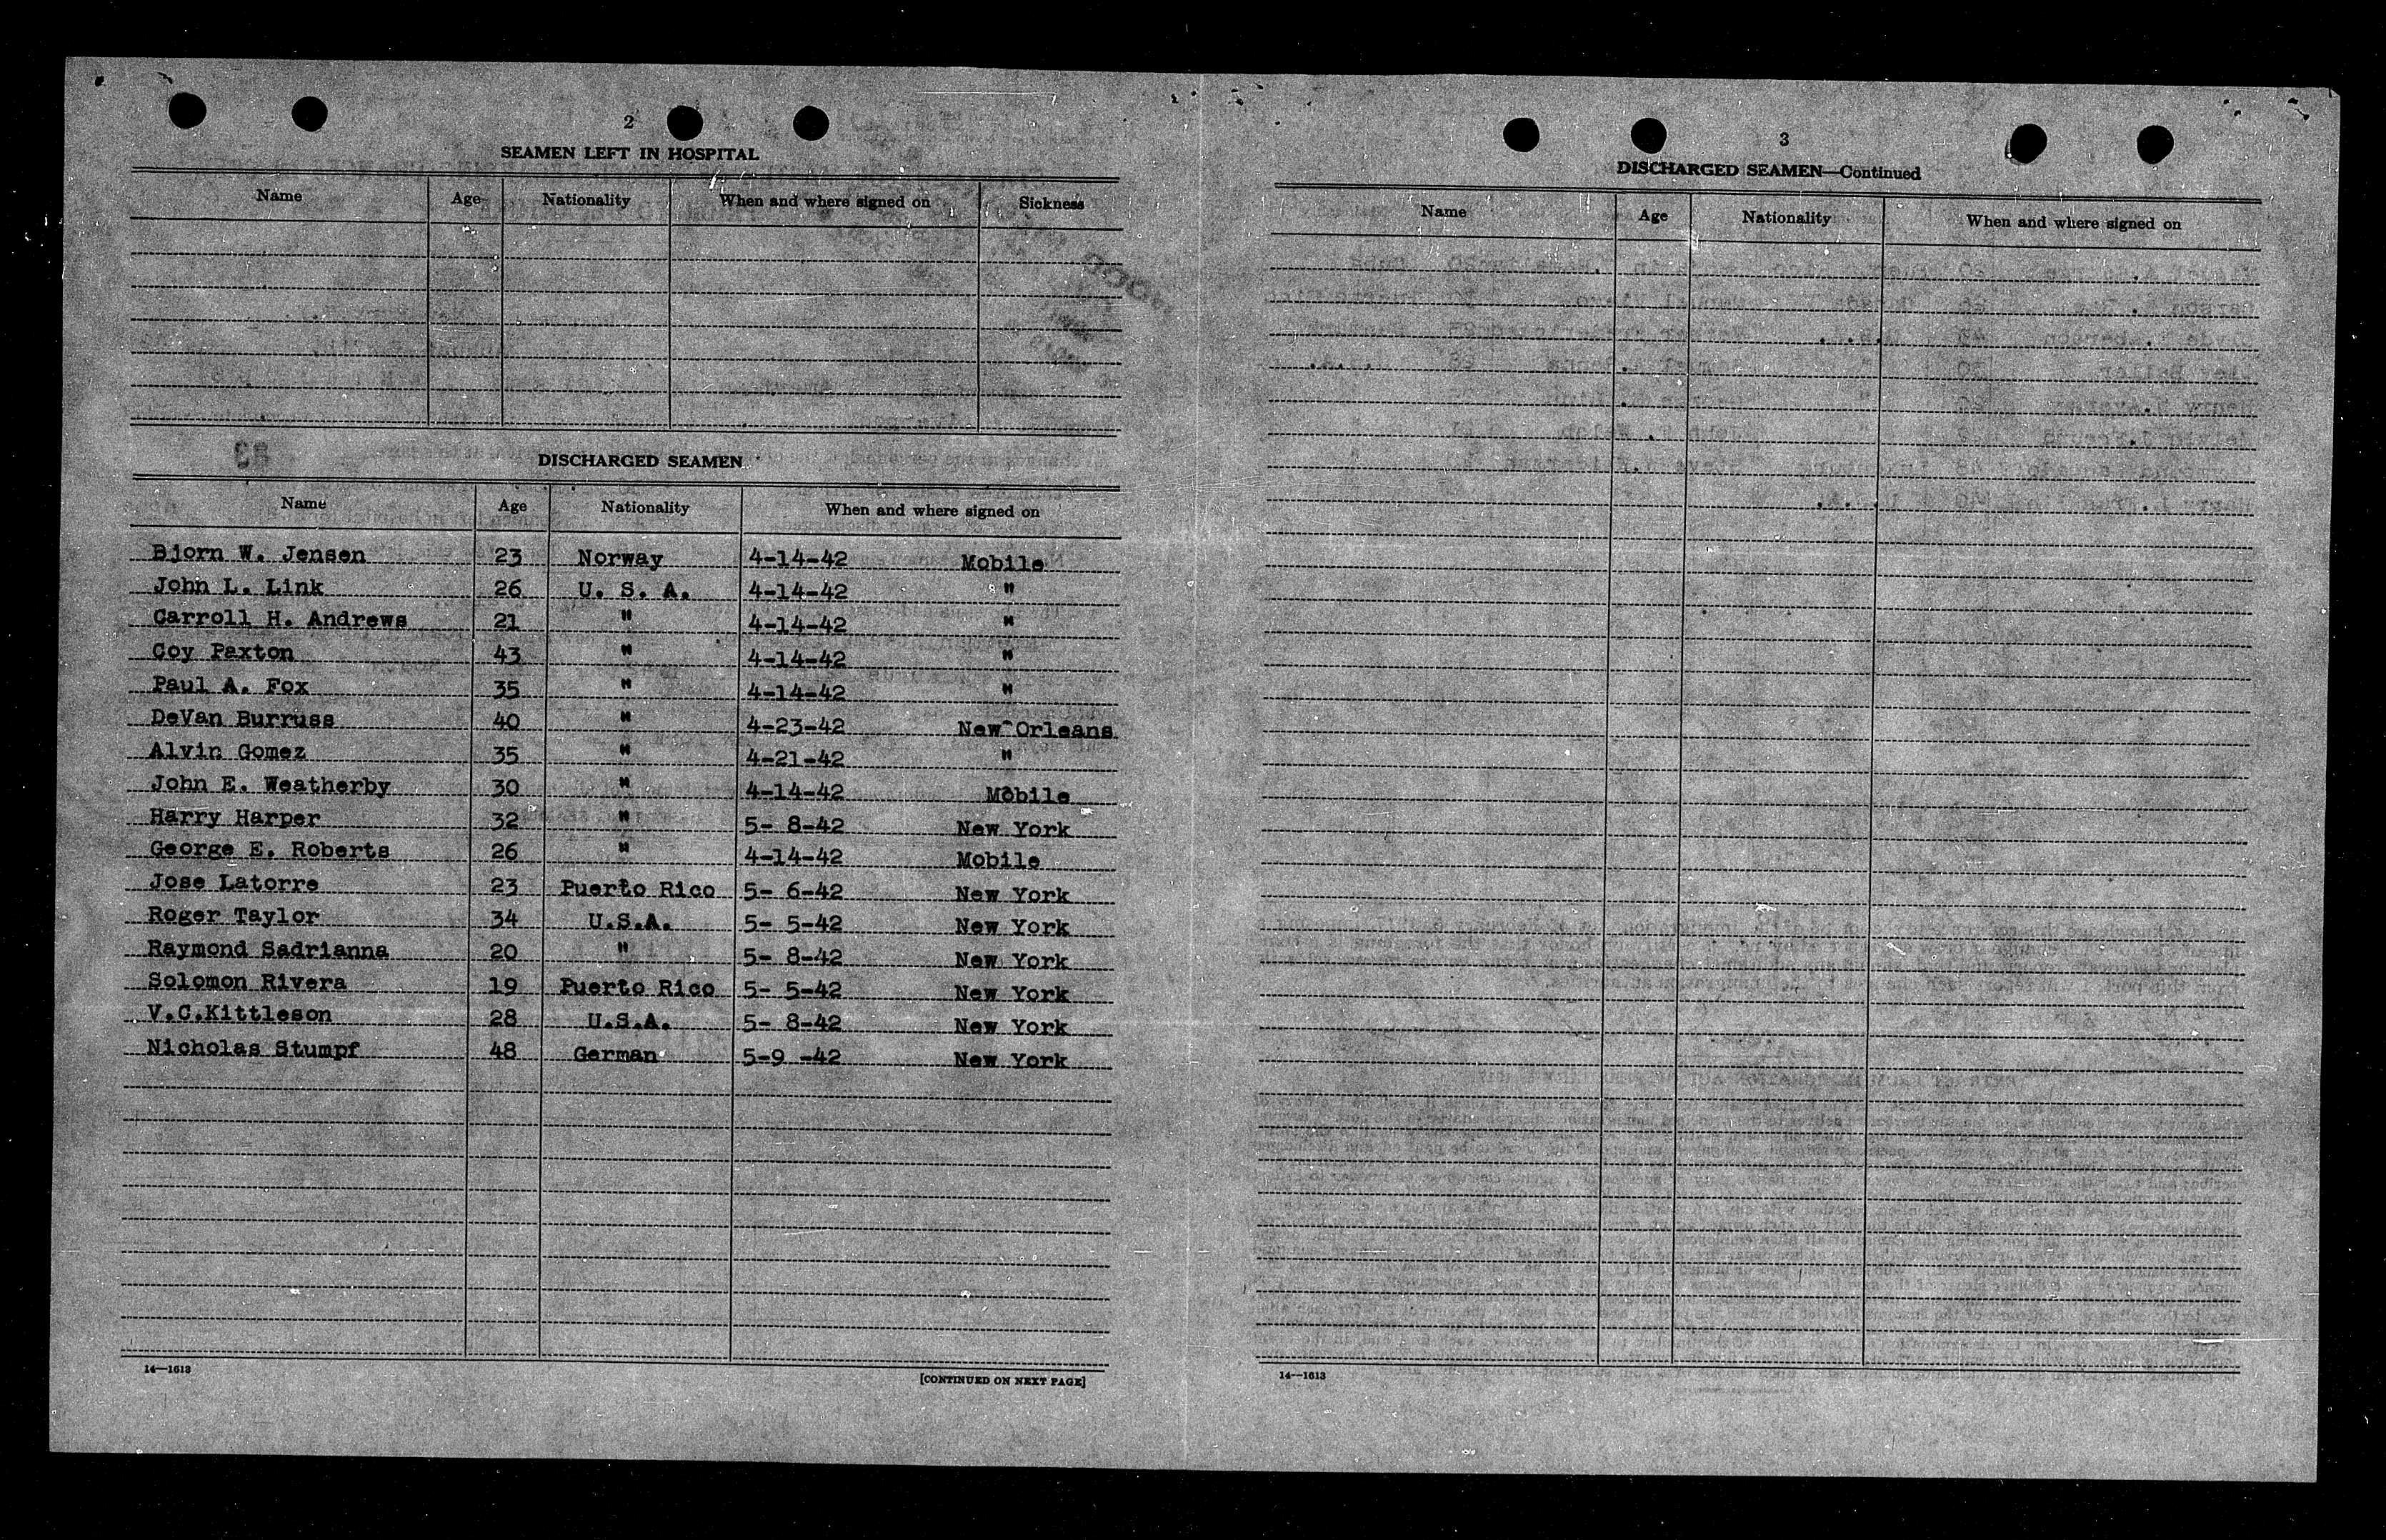 2
SEAMEN LEFT IN HOSPITAL
Name Age Nationality When and where signed on Sickness
DISCHARGED SEAMEN
Name Age Nationality When and where signed on
Bjorn W. Jensen 23 Norway 4-14-42 Mobile
John L. Link 26 U. S. A. 4-14-42 "
Carroll H. Andrews 21 " 4-14-42 "
Coy Paxton 43 " 4-14-42 "
Paul A. Fox 35 " 4-14-42 "
DeVan Burruss 40 " 4-23-42 New Orleans
Alvin Gomez 35 " 4-21-42 "
John E. Weatherby 30 " 4-14-42 Mobile
Harry Harper 32 " 5- 8-42 New York
George E. Roberts 26 " 4-14-42 Mobile
Jose Latorre 23 Puerto Rico 5- 6-42 New York
Roger Taylor 34 U.S.A. 5- 5-42 New York
Raymond Sadrianna 20 " 5- 8-42 New York
Solomon Rivera 19 Puerto Rico 5- 5-42 New York
V.C.Kittleson 28 U.S.A. 5- 8-42 New York
Nicholas Stumpf 48 German 5-9 -42 New York
14—1613
[CONTINUED ON NEXT PAGE]
3
DISCHARGED SEAMEN—Continued
Name Age Nationality When and where signed on
14—1613